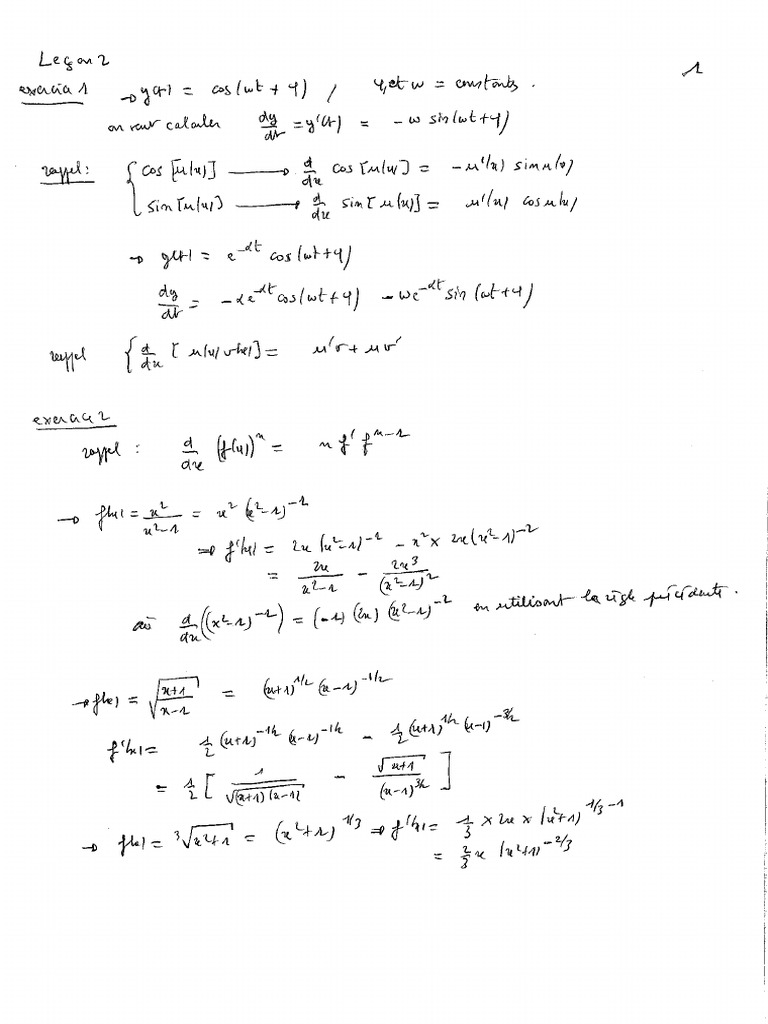 Leçon 2
1
exercice 1 → y(t) = cos(ωt + φ) , φ, et ω = constantes.
on veut calculer dy/dt = y'(t) = -ω sin(ωt+φ)
rappel: { cos[u(x)] → d/dx cos[u(x)] = -u'(x) sin u(x)
sin[u(x)] → d/dx sin[u(x)] = u'(x) cos u(x)
→ y(t) = e^{-αt} cos(ωt+φ)
dy/dt = -αe^{-αt} cos(ωt+φ) - ωe^{-αt} sin(ωt+φ)
rappel { d/dx [u(x) v(x)] = u'v + uv'
exercice 2
rappel : d/dx (f(x))^n = n f' f^{n-1}
→ f(x) = x²/(x²-1) = x² (x²-1)^{-1}
⇒ f'(x) = 2x (x²-1)^{-1} - x² × 2x (x²-1)^{-2}
= 2x/(x²-1) - 2x³/(x²-1)²
où d/dx((x²-1)^{-1}) = (-1) (2x) (x²-1)^{-2} en utilisant la règle précédente.
→ f(x) = √((x+1)/(x-1)) = (x+1)^{1/2} (x-1)^{-1/2}
f'(x) = 1/2 (x+1)^{-1/2} (x-1)^{-1/2} - 1/2 (x+1)^{1/2} (x-1)^{-3/2}
= 1/2 [ 1/√((x+1)(x-1)) - √(x+1)/(x-1)^{3/2} ]
→ f(x) = ³√(x²+1) = (x²+1)^{1/3} ⇒ f'(x) = 1/3 × 2x × (x²+1)^{1/3-1}
= 2/3 x (x²+1)^{-2/3}